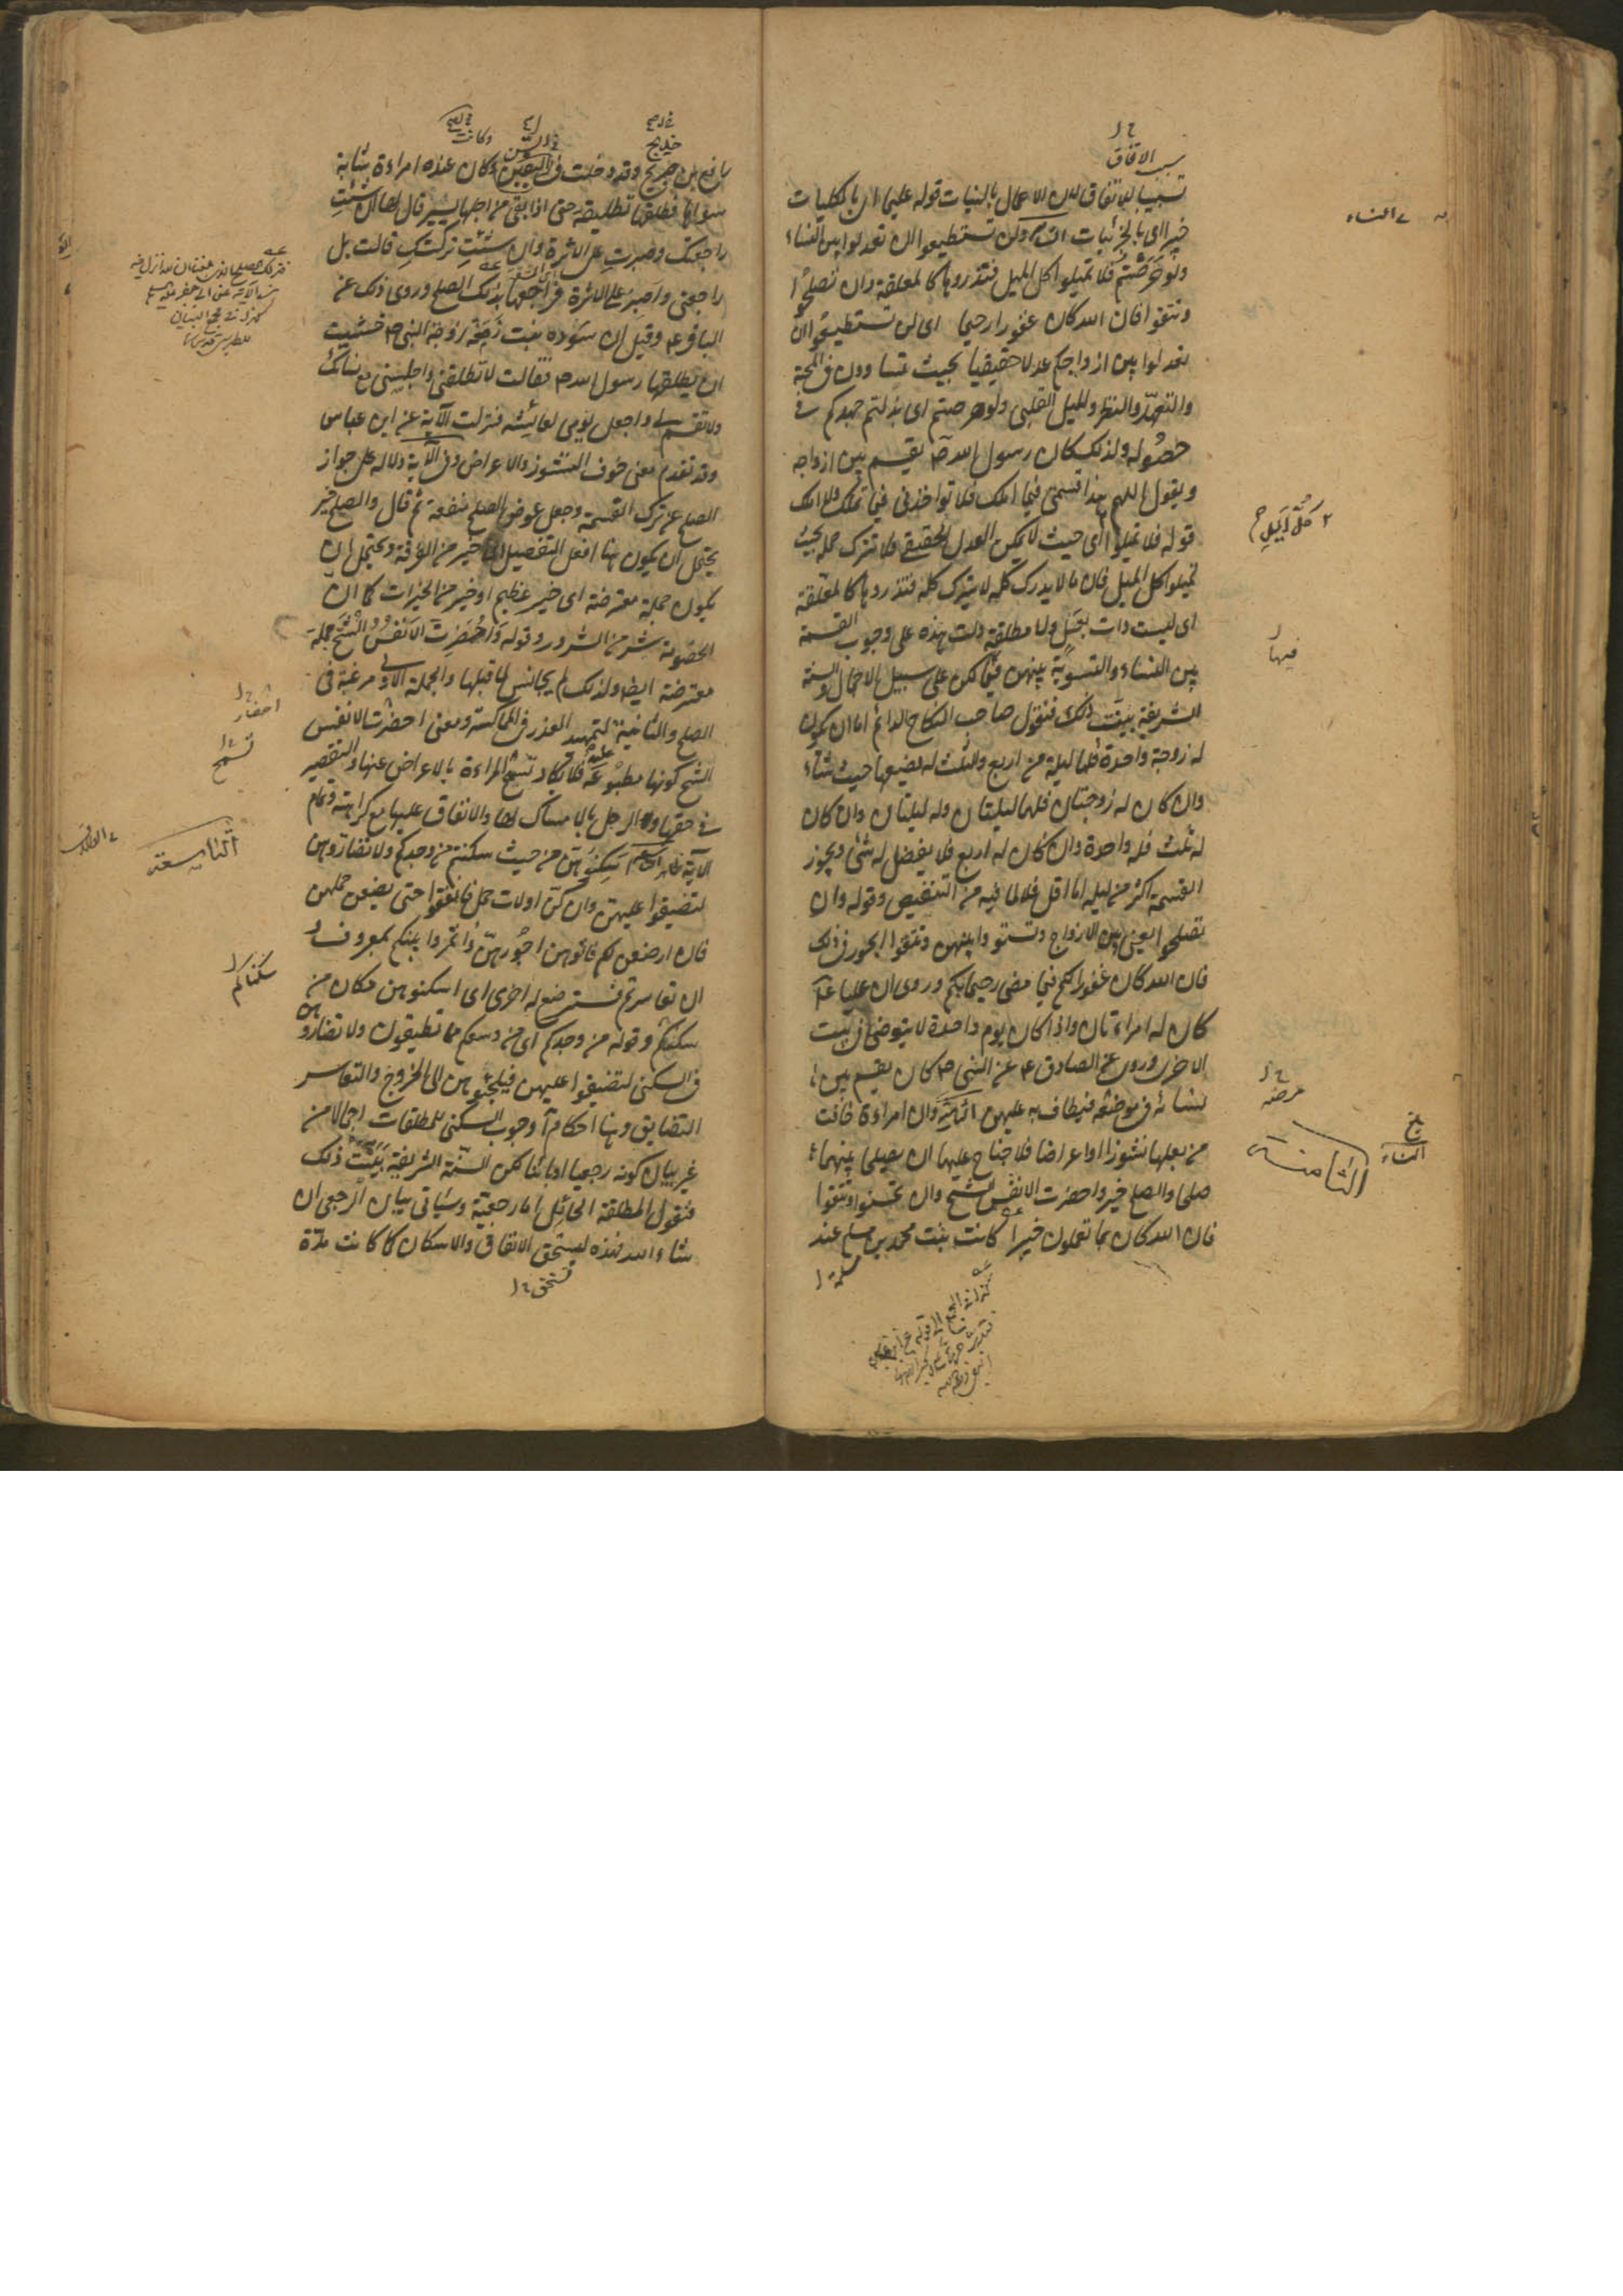 سبب الاتفاق
تسبيبا للاتفاق لان الاعمال بالنيات قوله عليما اى بالكليات
خبيرا اى بالجزئيات السابعة ولن تستطيعوا ان تعدلوا بين النساء
ولو حرصتم فلا تميلوا كل الميل فتذروها كالمعلقة وان تصلحوا
وتتقوا فان الله كان غفورا رحيما اى لن تستطيعوا ان
تعدلوا بين ازواجكم عدلا حقيقيا بحيث تساوون فى المحبة
والتعهد والنظر والميل القلبى ولو حرصتم اى بذلتم جهدكم فى
حصوله ولذلك كان رسول الله ص يقسم بين ازواجه
ويقول اللهم هذا قسمتى فيما املك فلا تواخذنى فيما تملك ولا املك
قوله فلا تميلوا اى حيث لا يمكن العدل الحقيقى فلا تترك جملة بحيث
تميلوا كل الميل فان ما لا يدرك كله لا يترك كله فتذروها كالمعلقة
اى ليست ذات بعل ولا مطلقة دلت هذه على وجوب القسمة
بين النساء والتسوية بينهن فيما يمكن على سبيل الاجمال والسنة
الشريفة بينت ذلك فنقول صاحب النكاح الدائم اما ان يكون
له زوجة واحدة فلها ليلة من اربع والثلث له يضعها حيث شاء
وان كان له زوجتان فلهما ليلتان وله ليلتان وان كان
له ثلث فله واحدة وان كان له اربع فلا يفضل له شئ ويجوز
القسمة اكثر من ليلة اما اقل فلا لما فيه من التنغيص وقوله وان
تصلحوا يعنى بين الازواج وتستووا بينهن وتتقوا الجور فى ذلك
فان الله كان غفورا لكم فيما مضى رحيما بكم وروى ان عليا ع
كان له امراءتان واذا كان يوم واحدة لا يتوضئ فى بيت
الاخرى وروى عن الصادق ع عن النبى ص كان يقسم بين
نسائه فى موضعه فيطاف به عليهن الثامنة وان امراءة خافت
من بعلها نشوزا او اعراضا فلا جناح عليهما ان يصلحا بينهما
صلحا والصلح خير واحضرت الانفس الشح وان تحسنوا وتتقوا
فان الله كان بما تعملون خبيرا كانت بنت محمد بن مسلم عند
مسلمة
النساء
كل الميل
فيها
مرضه
النساء
الثامنة
خديج
وكانت
رافع بن جريح وقد دخلت فى السن وكان عنده امراءة شابة
سواها فطلقها تطليقة حتى اذا بقى من اجلها يسير قال لها ان شئت
راجعتك وصبرت على الاثرة وان شئت تركتك قالت بل
راجعنى واصبر على الاثرة فراجعها بذلك الصلح وروى ذلك عن
الباقر ع وقيل ان سوده بنت زمعة زوجة النبى ص خشيت
ان يطلقها رسول الله ص فقالت لا تطلقنى واجلسنى مع نسائك
ولا تقسم لى واجعل يومى لعائشه فنزلت الآية عن ابن عباس
وقد تقدم معنى خوف النشوز والاعراض وفى الآية دلالة على جواز
الصلح عن ترك القسمة وجعل عوض الصلح منفعة ثم قال والصلح خير
يحتمل ان يكون هنا افعل التفضيل اى خير من الفرقة ويحتمل ان
يكون جملة معترضة اى خير عظيم او خير من الخيرات كما ان
الخصومة شر من الشرور وقوله واحضرت الانفس الشح جملة
معترضة ايضا ولذلك لم يجانس ما قبلها والجملة الاولى مرغبة فى
الصلح والثانية لتمهيد العذر فى المماكسة ومعنى احضرت الانفس
الشح كونها مطبوعة عليه فلا تكاد تسمح المراءة بالاعراض عنها والتقصير
فى حقها ولا الرجل بالامساك لها والانفاق عليها مع كراهته وتمام
الآية ظاهر التاسعة اسكنوهن من حيث سكنتم من وجدكم ولا تضاروهن
لتضيقوا عليهن وان كن اولات حمل فانفقوا حتى يضعن حملهن
فان ارضعن لكم فاتوهن اجورهن واتمروا بينكم بمعروف و
ان تعاسرتم فسترضع له اخرى اى اسكنوهن مكان من
سكنكم وقوله من وجدكم اى من وسعكم مما تطيقون ولا تضاروهن
فى السكنى لتضيقوا عليهن فيلجئوهن الى الخروج والتعاسر
التضايق وهنا احكام آ وجوب السكنى للمطلقات اجمالا من
غير بيان كونه رجعيا او بائنا لكن السنة الشريفة بينت ذلك
فنقول المطلقة الحائل اما رجعية وسيأتى بيان الرجعى ان
شاء الله فهذه يستحق الانفاق والاسكان كما كانت مدة
تستحق
احضار
تسمح
التاسعة
سكناكم